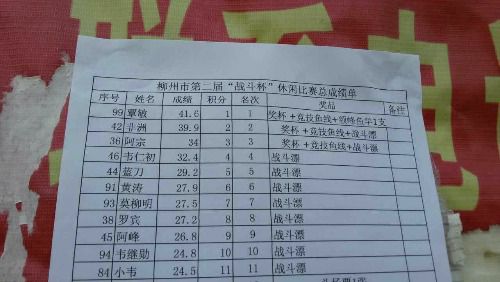 柳州市第二届“战斗杯”休闲比赛总成绩单
序号 姓名 成绩 积分 名次 奖品 备注
99 覃敏 41.6 1 1 奖杯+竞技鱼线+领峰鱼竿1支
42 非洲 39.9 2 2 奖杯+竞技鱼线+战斗漂
36 阿宗 34 3 3 奖杯+竞技鱼线+战斗漂
46 韦仁初 32.4 4 4 战斗漂
44 蓝刀 29.2 5 5 战斗漂
91 黄涛 27.9 6 6 战斗漂
93 莫柳明 27.5 7 7 战斗漂
38 罗宾 27.2 8 8 战斗漂
45 阿峰 26.8 9 9 战斗漂
94 韦继勋 24.8 10 10 战斗漂
84 小韦 24.5 11 11 战斗漂